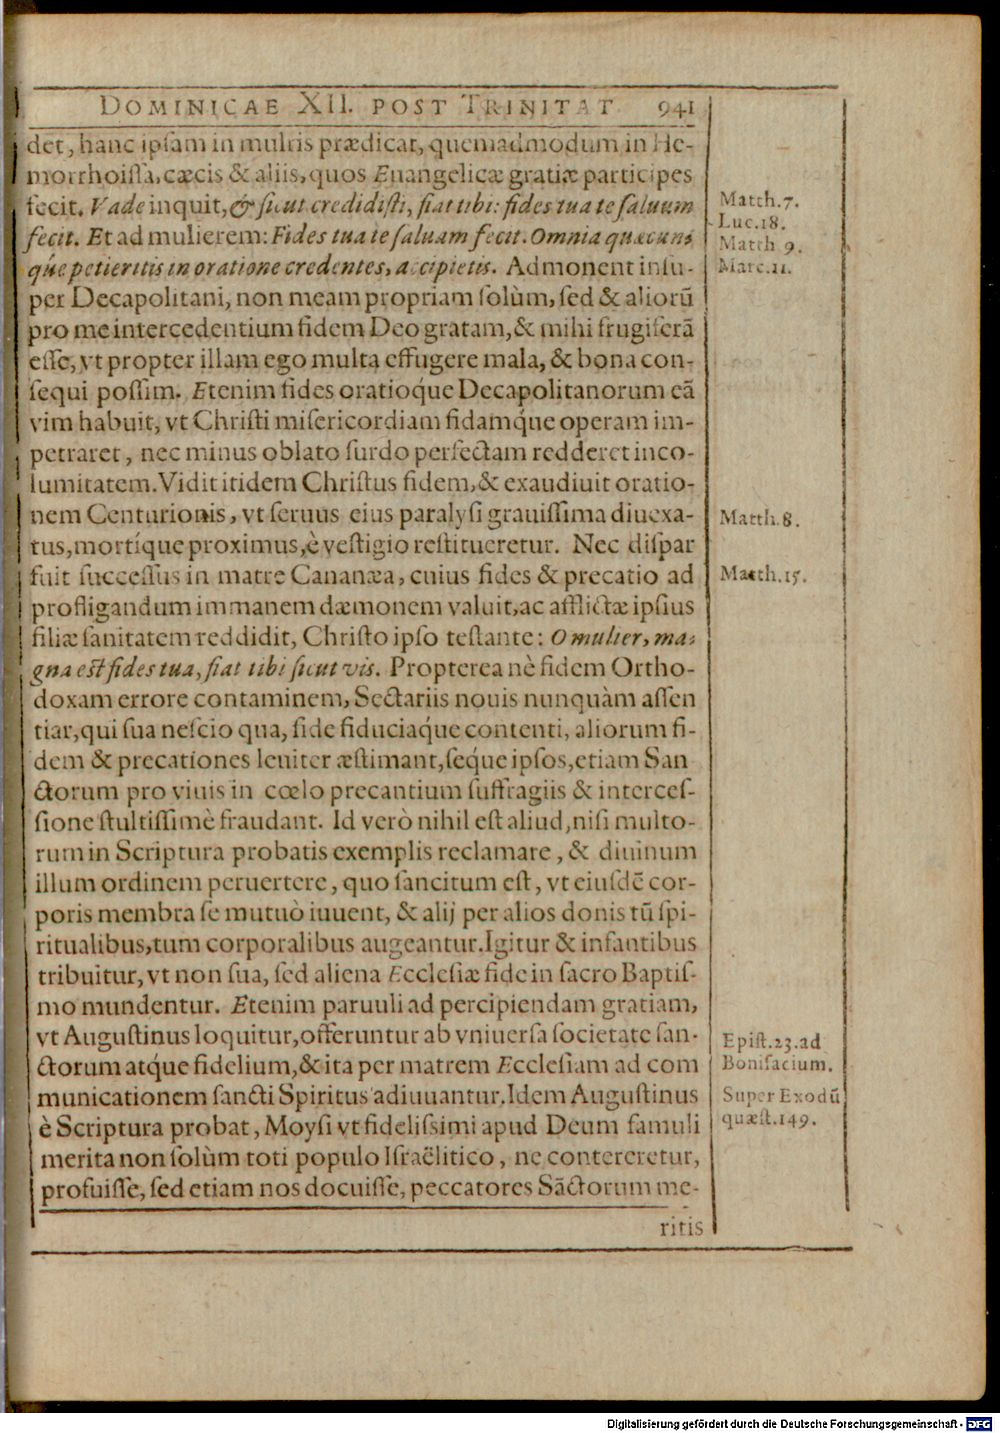 DOMINICAE XII. POST TRINITAT 941
det, hanc ipsam in multis prædicat, quemadmodum in He-
morrhoissa, cæcis & aliis, quos Euangelicæ gratiæ participes
fecit. Vade inquit, & sicut credidisti, fiat tibi: fides tua te saluum
fecit. Et ad mulierem: Fides tua te saluam fecit. Omnia quæcun-
q́ue petieritis in oratione credentes, accipietis. Admonent insu-
per Decapolitani, non meam propriam solùm, sed & aliorũ
pro me intercedentium fidem Deo gratam, & mihi frugiferã
esse, vt propter illam ego multa effugere mala, & bona con-
sequi possim. Etenim fides oratioq́ue Decapolitanorum eã
vim habuit, vt Christi misericordiam fidamq́ue operam im-
petraret, nec minus oblato surdo perfectam redderet inco-
lumitatem. Vidit itidem Christus fidem, & exaudiuit oratio-
nem Centurionis, vt seruus eius paralysi grauissima diuexa-
tus, mortíque proximus, è vestigio restitueretur. Nec dispar
fuit successus in matre Cananæa, cuius fides & precatio ad
profligandum immanem dæmonem valuit, ac afflictæ ipsius
filiæ sanitatem reddidit, Christo ipso testante: O mulier, ma-
gna est fides tua, fiat tibi sicut vis. Propterea nè fidem Ortho-
doxam errore contaminem, Sectariis nouis nunquàm assen
tiar, qui sua nescio qua, fide fiduciaq́ue contenti, aliorum fi-
dem & precationes leuiter æstimant, seq́ue ipsos, etiam San
ctorum pro viuis in cœlo precantium suffragiis & interces-
sione stultissimè fraudant. Id verò nihil est aliud, nisi multo-
rum in Scriptura probatis exemplis reclamare, & diuinum
illum ordinem peruertere, quo sancitum est, vt eiusdẽ cor-
poris membra se mutuò iuuent, & alij per alios donis tũ spi-
ritualibus, tum corporalibus augeantur. Igitur & infantibus
tribuitur, vt non sua, sed aliena Ecclesiæ fide in sacro Baptis-
mo mundentur. Etenim paruuli ad percipiendam gratiam,
vt Augustinus loquitur, offeruntur ab vniuersa societate san-
ctorum atq́ue fidelium, & ita per matrem Ecclesiam ad com
municationem sancti Spiritus adiuuantur. Idem Augustinus
è Scriptura probat, Moysi vt fidelissimi apud Deum famuli
merita non solùm toti populo Israëlitico, ne contereretur,
profuisse, sed etiam nos docuisse, peccatores Sãctorum me-
ritis
Matth.7.
Luc.18.
Matth 9.
Marc.11.
Matth.8.
Matth.15.
Epist.23.ad
Bonifacium.
Super Exodũ
quæst.149.
Digitalisierung gefördert durch die Deutsche Forschungsgemeinschaft - DFG